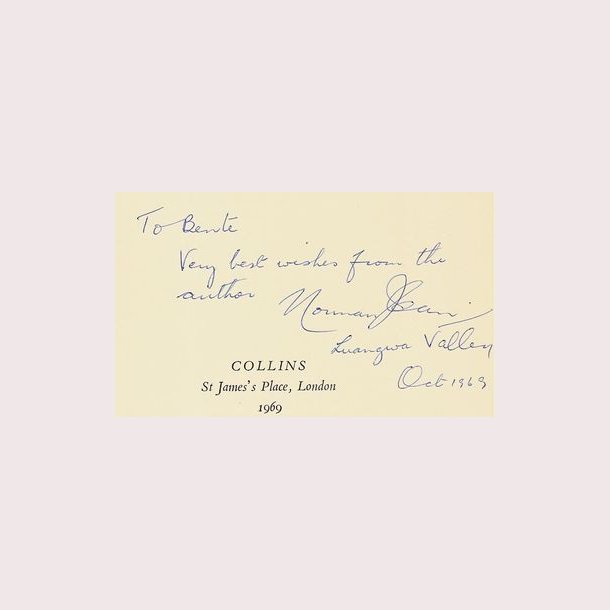 To Bente
Very best wishes from the
author Norman Carr
Luangwa Valley
Oct 1969
COLLINS
St James's Place, London
1969